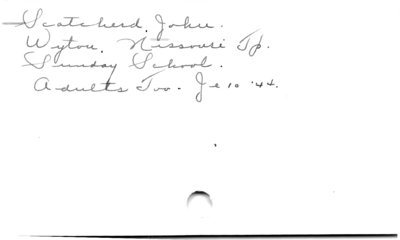 Scatcherd, John.
Wyton, Nissouri Tp.
Sunday School.
Adults Too. Je 10 '44.